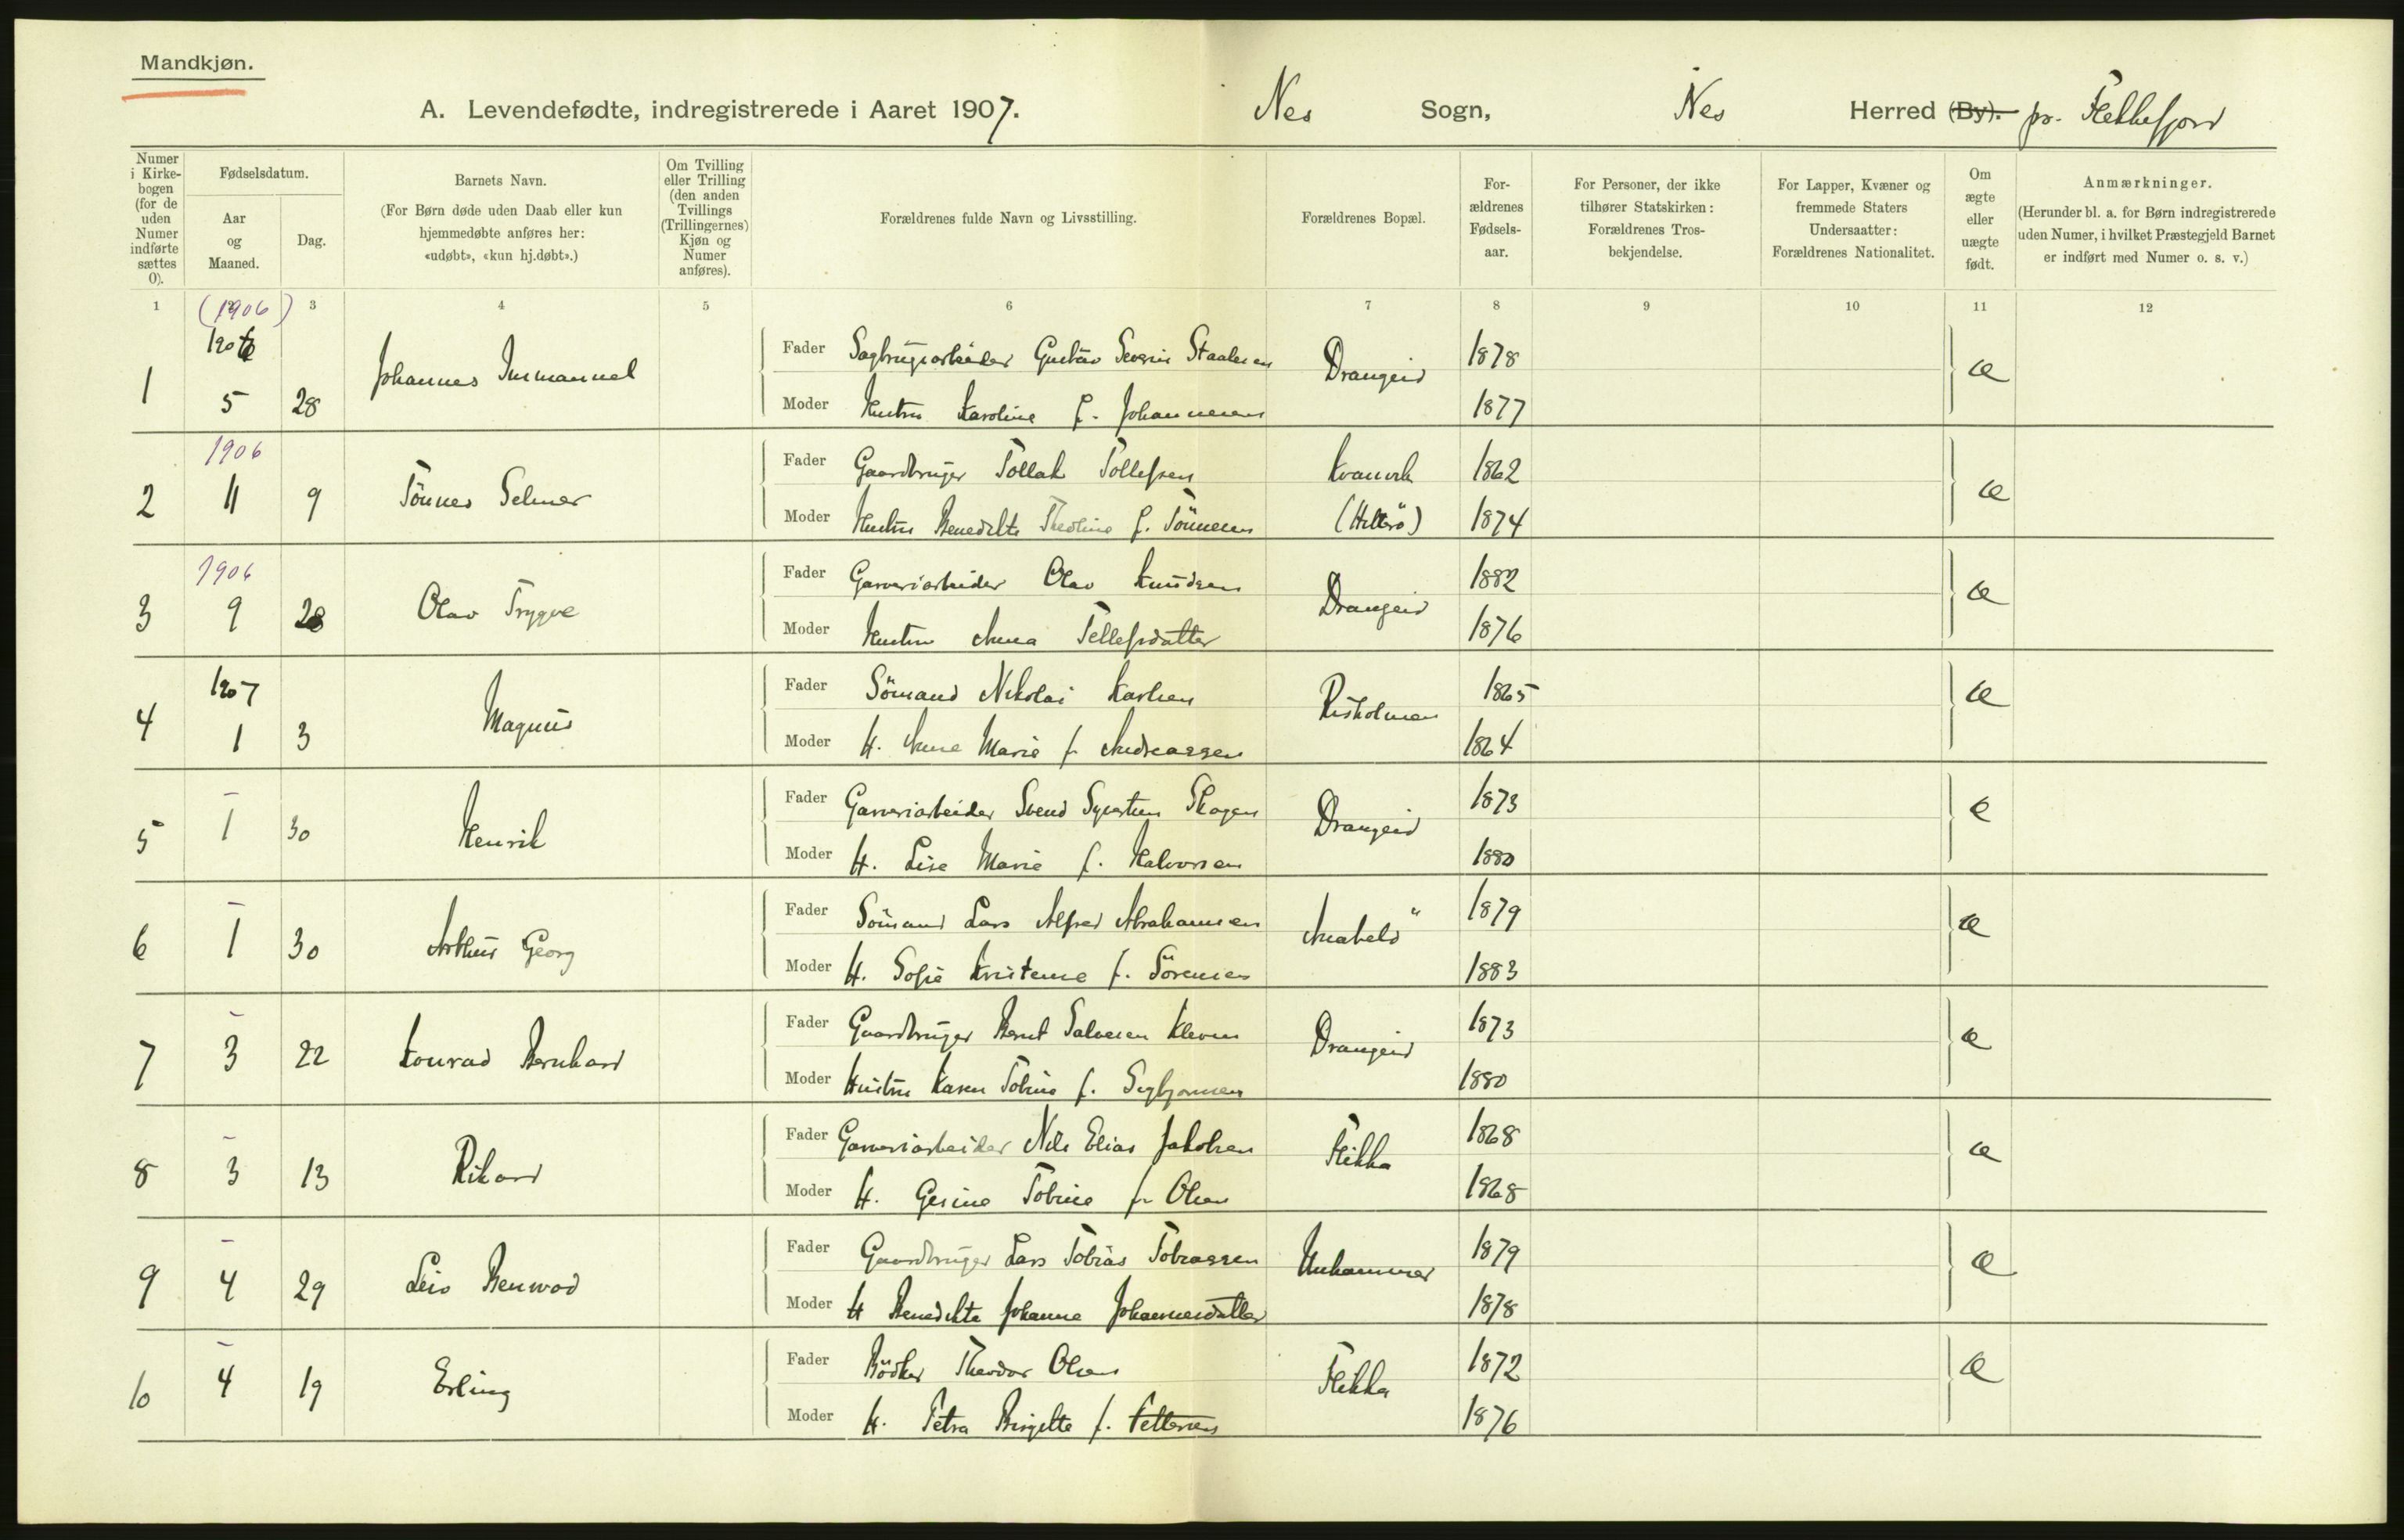 Mandkjøn.
A. Levendefødte, indregistrerede i Aaret 1907. Nes Sogn, Nes Herred (By). pr. Flekkefjord
Numer i Kirkebogen (for de uden Numer indførte sættes 0).
Fødselsdatum.
Aar og Maaned.
Dag.
Barnets Navn.
(For Børn døde uden Daab eller kun hjemmedøbte anføres her: «udøbt», «kun hj.døbt».)
Om Tvilling eller Trilling (den anden Tvillings (Trillingernes) Kjøn og Numer anføres).
Forældrenes fulde Navn og Livsstilling.
Forældrenes Bopæl.
Forældrenes Fødselsaar.
For Personer, der ikke tilhører Statskirken: Forældrenes Trosbekjendelse.
For Lapper, Kvæner og fremmede Staters Undersaatter: Forældrenes Nationalitet.
Om ægte eller uægte født.
Anmærkninger.
(Herunder bl. a. for Børn indregistrerede uden Numer, i hvilket Præstegjeld Barnet er indført med Numer o. s. v.)
1 2 3 4 5 6 7 8 9 10 11 12
(1906)
1906
1 5 28 Johannes Immanuel Fader Sagbrugsarbeider Gustav Severin Staalesen Drangeid 1878 æ
Moder Hustru Karoline f. Johannesen 1877
1906
2 11 9 Tönnes Selmer Fader Gaardbruger Tollak Tollefsen Kvanvik 1862 æ
Moder Hustru Benedikte Theoline f. Tönnesen (Hitterö) 1874
1906
3 9 28 Olav Trygve Fader Garveriarbeider Olav Knudsen Drangeid 1882 æ
Moder Hustru Anna Tellefsdatter 1876
1907
4 1 3 Magnus Fader Sömand Nikolai Karlsen Risholmen 1865 æ
Moder H. Anne Marie f. Andreassen 1864
5 1 30 Henrik Fader Garveriarbeider Svend Syvertsen Skogen Drangeid 1873 æ
Moder H. Lise Marie f. Halvorsen 1880
6 1 30 Arthur Georg Fader Sömand Lars Alfred Abrahamsen Anabelö 1879 æ
Moder H. Sofie Kristense f. Sörensen 1883
7 3 22 Konrad Bernhard Fader Gaardbruger Bernt Salvesen Kleven Drangeid 1873 æ
Moder Hustru Karen Tobine f. Sigbjørnsen 1880
8 3 13 Rikard Fader Garveriarbeider Nils Elias Jakobsen Flikka 1868 æ
Moder H. Gesine Tobine f. Olsen 1868
9 4 29 Leis Benwod Fader Gaardbruger Lars Tobias Tobiassen Unhammer 1879 æ
Moder H Benedikte Johanne Johannesdatter 1878
10 4 19 Erling Fader Bödker Theodor Olsen Flikka 1872 æ
Moder H. Petra Birgitte f. Pettersen 1876